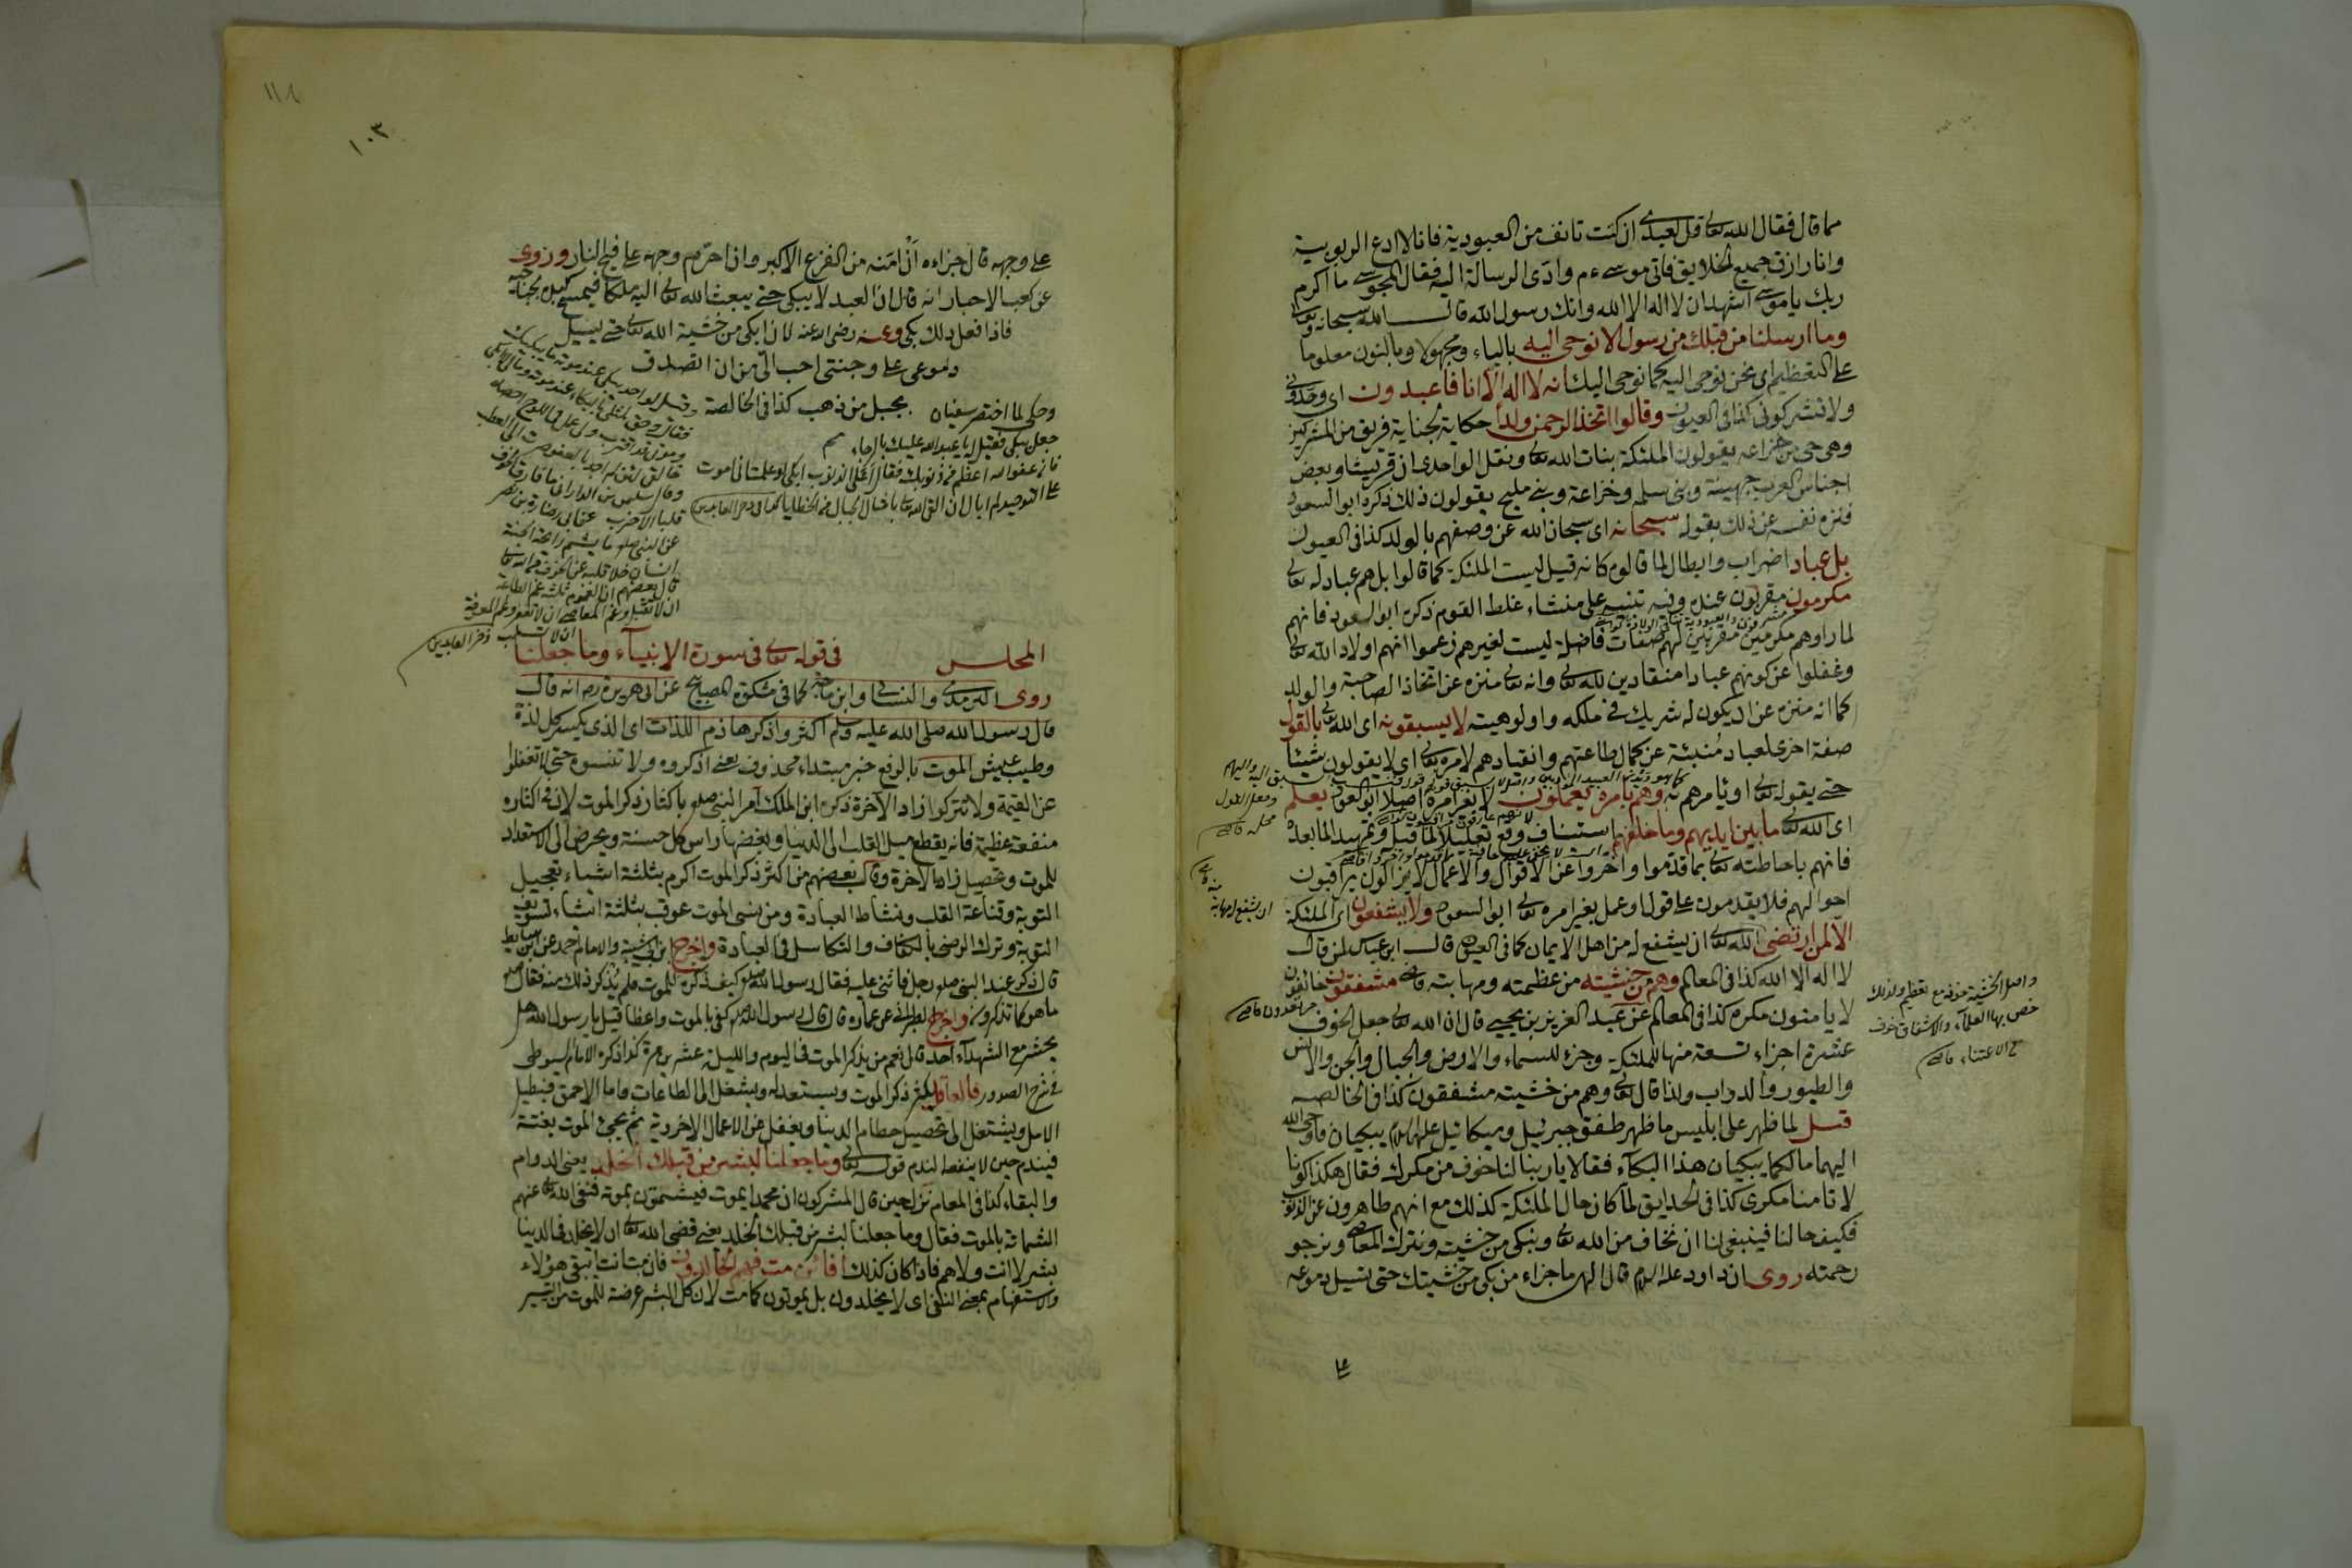 مما قال فقال الله تعالى قل لعبدى ان كنت تانف من العبودية فانا لا ادع الربوبية
وانا رازق جميع الخلايق فاتى موسى ءم وادى الرسالة اليه فقال المجوسى ما اكرم
ربك يا موسى اشهد ان لا اله الا الله وانك رسول الله قال الله سبحانه وتعالى
وما ارسلنا من قبلك من رسول الا نوحى اليه بالياء ومجهولا وبالنون معلوما
على التعظيم اى نحن نوحى اليه كما نوحى اليك انه لا اله الا انا فاعبدون اى وحدونى
ولا تشركونى كذا فى العيون وقالوا اتخذ الرحمن ولدا حكاية لجناية فريق من المشركين
وهى حى من خزاعه يقولون الملئكة بنات الله تعالى ونقل الواحدى ان قريشا وبعض
اجناس العرب جهينة وبنى سلمه وخزاعة وبنى مليح يقولون ذلك ذكره ابو السعود
فنزه نفسه عن ذلك بقوله سبحانه اى سبحان الله عن وصفهم بالولد كذا فى العيون
بل عباد اضراب وابطال لما قالوه كانه قيل ليست الملئكة كما قالوا بل هم عباد له تعالى
مكرمون مقربون عنده وفيه تنبيه على منشاء غلط القوم ذكره ابو السعود فانهم
لما راوهم مكرمين مقربين لهم صفات فاضلة ليست لغيرهم زعموا انهم اولاد الله تعالى
وغفلوا عن كونهم عبادا منقادين لله تعالى وانه تعالى منزه عن اتخاذ الصاحبة والولد
كما انه منزه عن ان يكون له شريك فى ملكه واولوهيته لا يسبقونه اى الله تعالى بالقول
صفة اخرى لعباد منبئة عن كمال طاعتهم وانقيادهم لامره تعالى اى لا يقولون شيئا
حتى يقوله تعالى او يامرهم به وهم بامره يعملون لا بغير امره اصلا ابو السعود يعلم
اى الله تعالى ما بين ايديهم وما خلفهم استيناف وقع تعليلا لما قبله وتمهيدا لما بعده
فانهم باحاطته تعالى بما قدموا واخروا عن الاقوال والاعمال لا يزالون يراقبون
احوالهم فلا يقدمون على قول او عمل بغير امره تعالى ابو السعود ولا يشفعون اى الملئكة
الا لمن ارتضى الله تعالى ان يشفع له من اهل الايمان كما فى العيون قال ابن عباس لمن قال
لا اله الا الله كذا فى المعالم وهم من خشيته من عظمته ومهابته قاضى مشفقون خائفون
لا يامنون مكره كذا فى المعالم عن عبد العزيز بن يحيى قال ان الله تعالى جعل الخوف
عشرة اجزاء تسعة منها للملئكة وجزء للسماء والارض والجبال والجن والانس
والطيور والدواب ولذا قال تعالى وهم من خشيته مشفقون كذا فى الخالصه
قيل لما ظهر على ابليس ما ظهر طفق جبريل وميكائيل عليهما السلام يبكيان فاوحى الله
اليهما ما لكما يبكيان هذا البكاء فقالا يا ربنا لنا خوف من مكرك فقال هكذا كونا
لا تامنا مكرى كذا فى الحدايق لما كان حال الملئكة كذلك مع انهم طاهرون عن الذنوب
فكيف حالنا فينبغى لنا ان نخاف من الله تعالى ونبكى من خشيته ونترك المعاصى ونرجو
رحمته روى ان داود عليه السلام قال الهى ما جزاء من بكى من خشيتك حتى تسيل دموعه
على
واصل الخشية خوف مع تعظيم ولذلك
خص بها العلماء والاشفاق خوف
مع الاعتناء قاضى
١٠٣
على وجهه قال جزاءه ان امنه من الفزع الاكبر وان احرم وجهه على فيح النار وروى
عن كعب الاحبار انه قال ان العبد لا يبكى حتى يبعث الله تعالى اليه ملكا فيمسح كبده بجناحيه
فاذا فعل ذلك بكى وعنه رضى الله عنه لان ابكى من خشية الله تعالى حتى تسيل
دموعى على وجنتى احب الى من ان اتصدق
بجبل من ذهب كذا فى الخالصة
وحكى لما احتضر سفيان
جعل يبكى فقيل له يا عبد الله عليك بالرجاء
فان عفو الله اعظم من ذنوبك فقال اعلى الذنوب ابكى لو علمت انى اموت
على التوحيد لم ابال ان القى الله تعالى بامثال الجبال من الخطايا كما فى ذخر العابدين
عن النبى صلعم ما يشم رائحة الجنة
انسان خلا قلبه عن الخوف
ان لا تقبل وغم المعاصى ان لا تغفر وغم المعرفة
ان لا تسلب ذخر العابدين
المجلس فى قوله تعالى فى سورة الانبياء وما جعلنا
روى الترمذى والنسائى وابن ماجه كما فى مشكوة المصابيح عن ابى هريرة رض انه قال
قال رسول الله صلى الله عليه وسلم اكثروا ذكر هاذم اللذات اى الذى يكسر كل لذة
وطيب عيش الموت بالرفع خبر مبتداء محذوف يعنى اذكروه ولا تنسوه حتى لا تغفلوا
عن القيمة ولا تتركوا زاد الآخرة ذكره ابن الملك آمر النبى صلعم باكثار ذكر الموت لان فى اكثاره
منفعة عظيمة فانه يقطع ميل القلب الى الدنيا وبغضها راس كل حسنة ويحرض الى الاستعداد
للموت وتحصيل زاد الآخرة وقال بعضهم من اكثر ذكر الموت اكرم بثلثة اشياء تعجيل
التوبة وقناعة القلب ونشاط العبادة ومن نسى الموت عوقب بثلثة اشياء تسويف
التوبة وترك الرضى بالكفاف والتكاسل فى العبادة واخرج ابن ابى شيبة والامام احمد عن ابن سابط
قال ذكر عند النبى صلعم رجل فاثنى عليه فقال رسول الله صلعم كيف ذكره للموت فلم يذكر ذلك منه فقال
ما هو كما تذكرون واخرج الطبرانى عن عمار قال قال رسول الله صلعم كفى بالموت واعظا قيل يا رسول الله هل
يحشر مع الشهداء احد قال نعم من يذكر الموت فى اليوم والليلة عشرين مرة كذا ذكره الامام السيوطى
فى شرح الصدور فالعاقل يكثر ذكر الموت ويستعد له ويشغل الى الطاعات واما الاحمق فيطيل
الامل ويشتغل الى تحصيل حطام الدنيا ويغفل عن الاعمال الاخروية ثم يجئ الموت بغتة
فيندم حين لا ينفع الندم قوله تعالى وما جعلنا لبشر من قبلك الخلد يعنى الدوام
والبقاء كذا فى المعالم نزل حين قال المشركون ان محمدا يموت فيشمتون بموته فنفى الله تعالى عنهم
الشماتة بالموت فقال وما جعلنا لبشر من قبلك الخلد يعنى قضى الله تعالى ان لا يخلد فى الدنيا
بشر لا انت ولا هم فاذا كان كذلك افائن مت فهم الخالدون فان مت انت ايبقى هؤلاء
والاستفهام بمعنى النفى اى لا يخلدون بل يموتون كما مت لان كل البشر عرضة للموت من التيسير